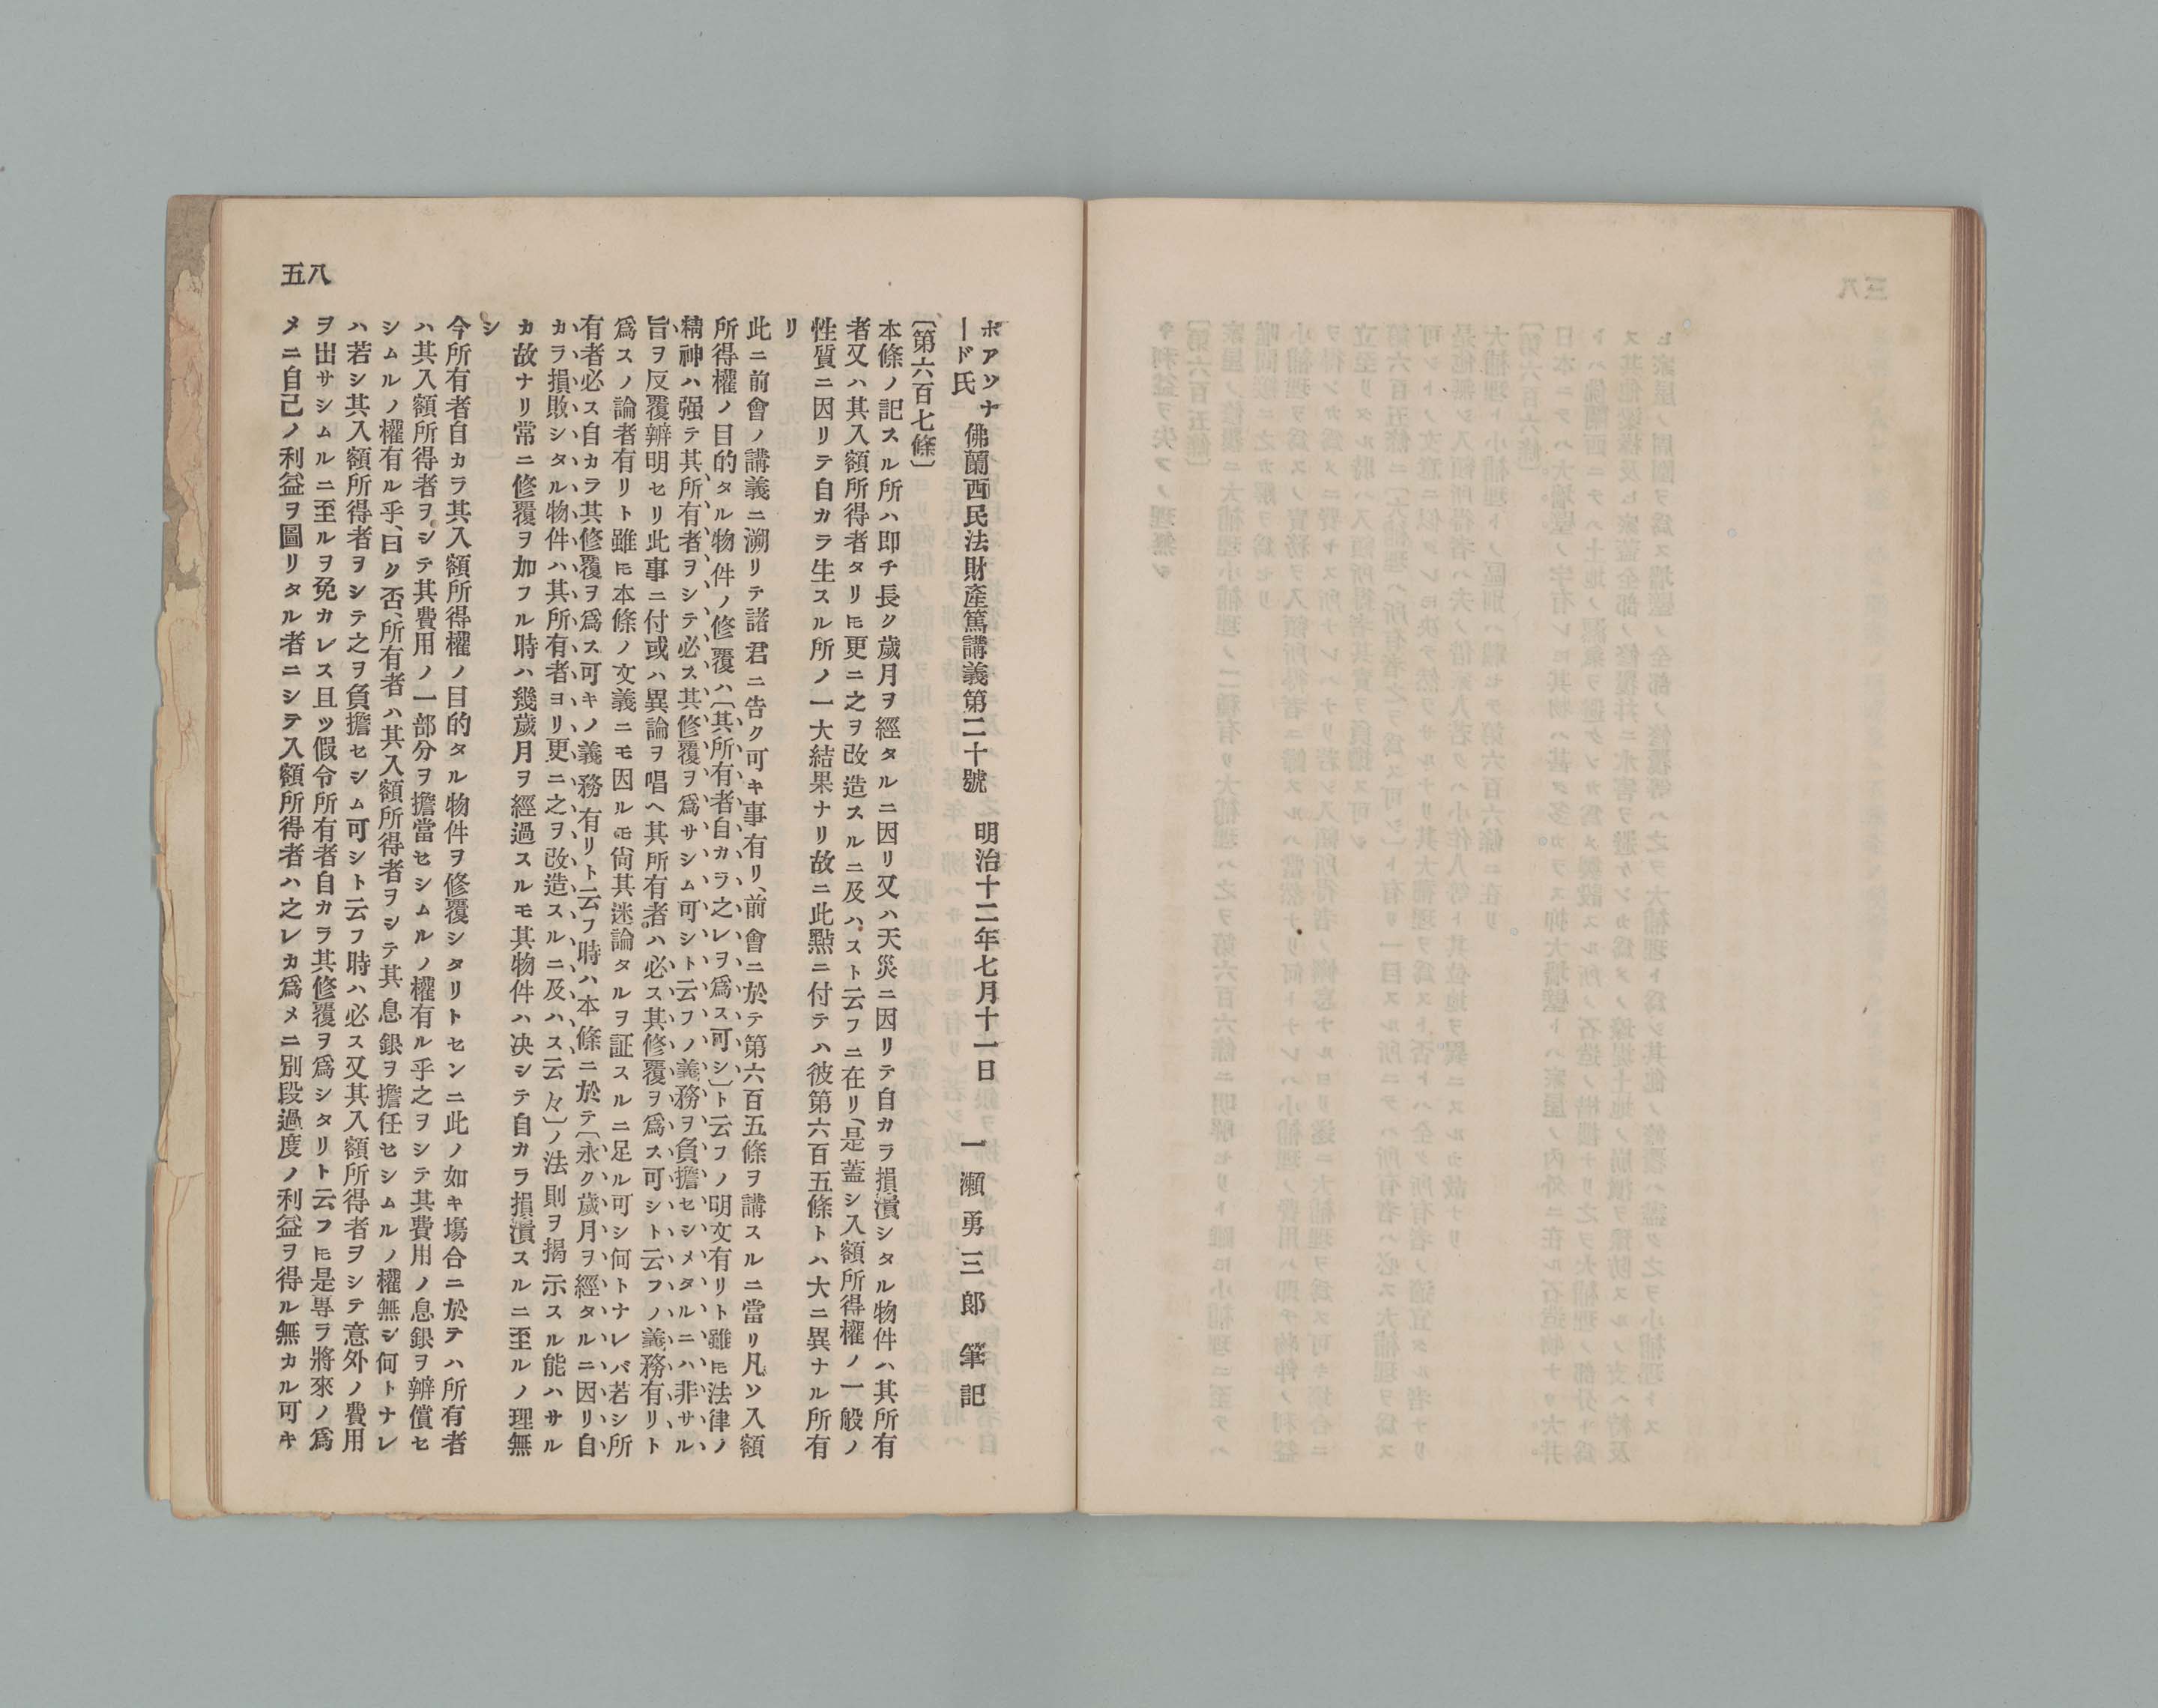 ボアソナード氏 佛蘭西民法財産篇講義第二十號 明治十二年七月十一日 一瀬勇三郎筆記
〔第六百七條〕
本條ノ記スル所ハ即チ長ク歲月ヲ經タルニ因リ又ハ天災ニ因リテ自カラ損潰シタル物件ハ其所有
者又ハ其入額所得者タリ𪜈更ニ之ヲ改造スルニ及ハスト云フニ在リ、是蓋シ入額所得權ノ一般ノ
性質ニ因リテ自カラ生スル所ノ一大結果ナリ故ニ此點ニ付テハ彼第六百五條トハ大ニ異ナル所有
リ
此ニ前會ノ講義ニ溯リテ諸君ニ告ク可キ事有リ、前會ニ於テ第六百五條ヲ講スルニ當リ凡ソ入額
所得權ノ目的タル物件ノ修覆ハ〔其所有者自カラ之レヲ爲ス可シ〕ト云フノ明文有リト雖𪜈法律ノ
精神ハ强テ其所有者ヲシテ必ス其修覆ヲ爲サシム可シト云フノ義務ヲ負擔セシメタルニハ非サル
旨ヲ反覆辨明セリ此事ニ付或ハ異論ヲ唱ヘ其所有者ハ必ス其修覆ヲ爲ス可シト云フノ義務有リト
爲スノ論者有リト雖𪜈本條ノ文義ニモ因ルモ尙其迷論タルヲ証スルニ足ル可シ何トナレバ若シ所
有者必ス自カラ其修覆ヲ爲ス可キノ義務有リト云フ時ハ本條ニ於テ〔永ク歲月ヲ經タルニ因リ自
カラ損敗シタル物件ハ其所有者ヨリ更ニ之ヲ改造スルニ及ハス云々〕ノ法則ヲ揭示スル能ハサル
カ故ナリ常ニ修覆ヲ加フル時ハ幾歲月ヲ經過スルモ其物件ハ决シテ自カラ損潰スルニ至ルノ理無
シ
今所有者自カラ其入額所得權ノ目的タル物件ヲ修覆シタリトセンニ此ノ如キ塲合ニ於テハ所有者
ハ其入額所得者ヲシテ其費用ノ一部分ヲ擔當セシムルノ權有ル乎之ヲシテ其費用ノ息銀ヲ辨償セ
シムルノ權有ル乎、曰ク否、所有者ハ其入額所得者ヲシテ其息銀ヲ擔任セシムルノ權無シ何トナレ
ハ若シ其入額所得者ヲシテ之ヲ負擔セシム可シト云フ時ハ必ス又其入額所得者ヲシテ意外ノ費用
ヲ出サシムルニ至ルヲ免カレス且ツ假令所有者自カラ其修覆ヲ爲シタリト云フ𪜈是專ラ將來ノ爲
メニ自己ノ利益ヲ圖リタル者ニシテ入額所得者ハ之レカ爲メニ別段過度ノ利益ヲ得ル無カル可キ
五八